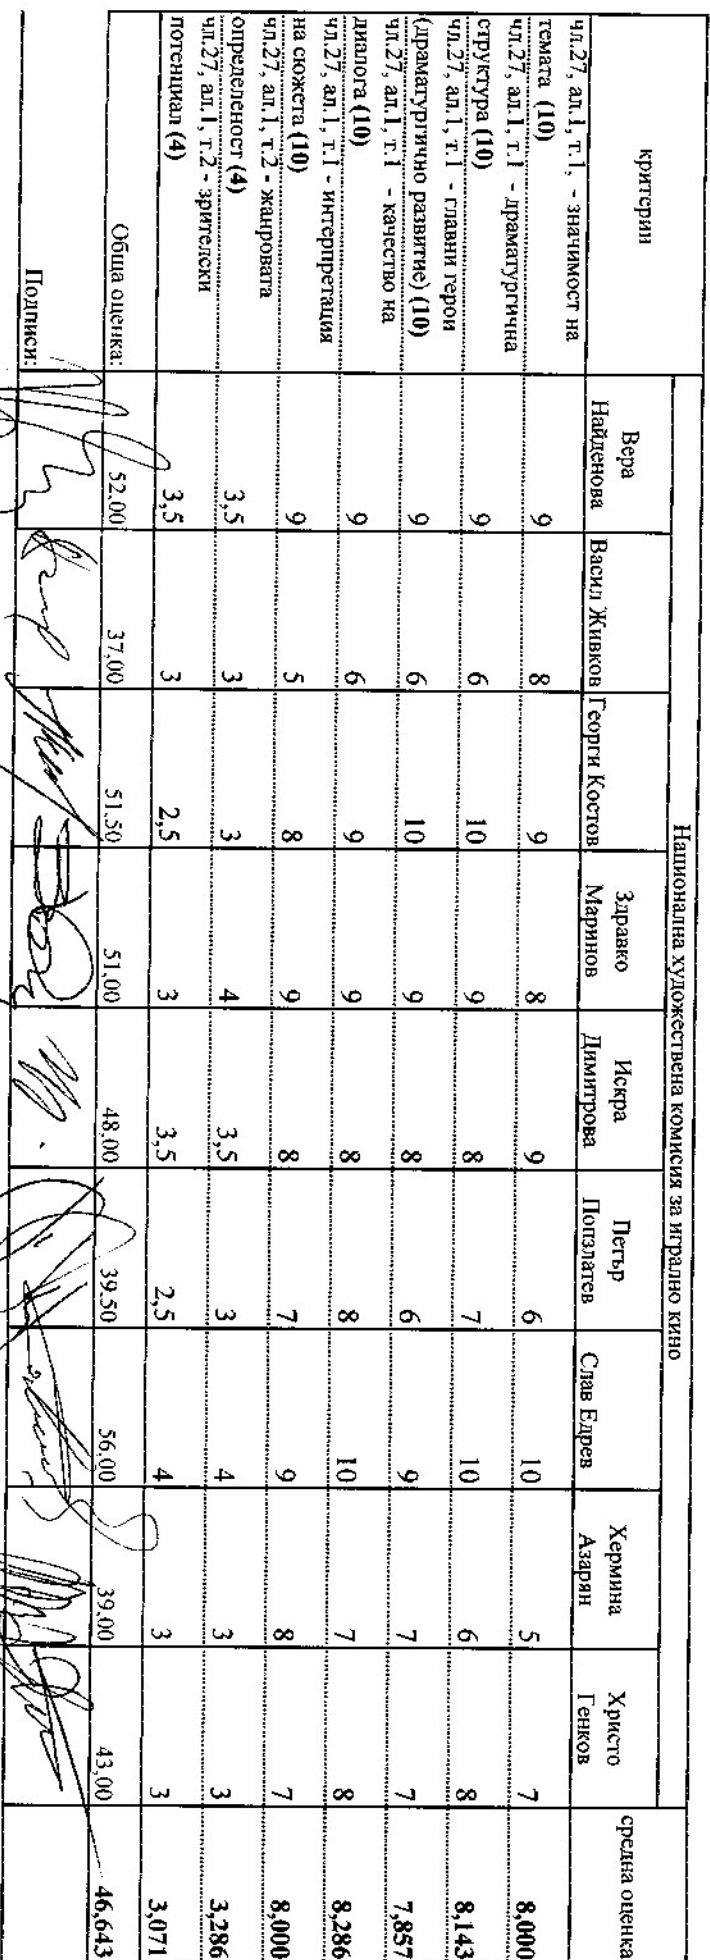 критерии
Национална художествена комисия за игрално кино
средна оценка
Вера Найденова
Васил Живков
Георги Костов
Здравко Маринов
Искра Димитрова
Петър Попзлатев
Слав Едрев
Хермина Азарян
Христо Генков
чл.27, ал.1, т.1, - значимост на
темата (10) 9 8 9 8 9 6 10 5 7 8,000
чл.27, ал.1, т.1 - драматургична
структура (10) 9 6 10 9 8 7 10 6 8 8,143
чл.27, ал.1, т.1 - главни герои
(драматургично развитие) (10) 9 6 10 9 8 6 9 7 7 7,857
чл.27, ал.1, т.1 - качество на
диалога (10) 9 6 9 9 8 8 10 7 8 8,286
чл.27, ал.1, т.1 - интерпретация
на сюжета (10) 9 5 8 9 8 7 9 8 7 8,000
чл.27, ал.1, т.2 - жанровата
определеност (4) 3,5 3 3 4 3,5 3 4 3 3 3,286
чл.27, ал.1, т.2 - зрителски
потенциал (4) 3,5 3 2,5 3 3,5 2,5 4 3 3 3,071
Обща оценка: 52,00 37,00 51,50 51,00 48,00 39,50 56,00 39,00 43,00 46,643
Подписи: